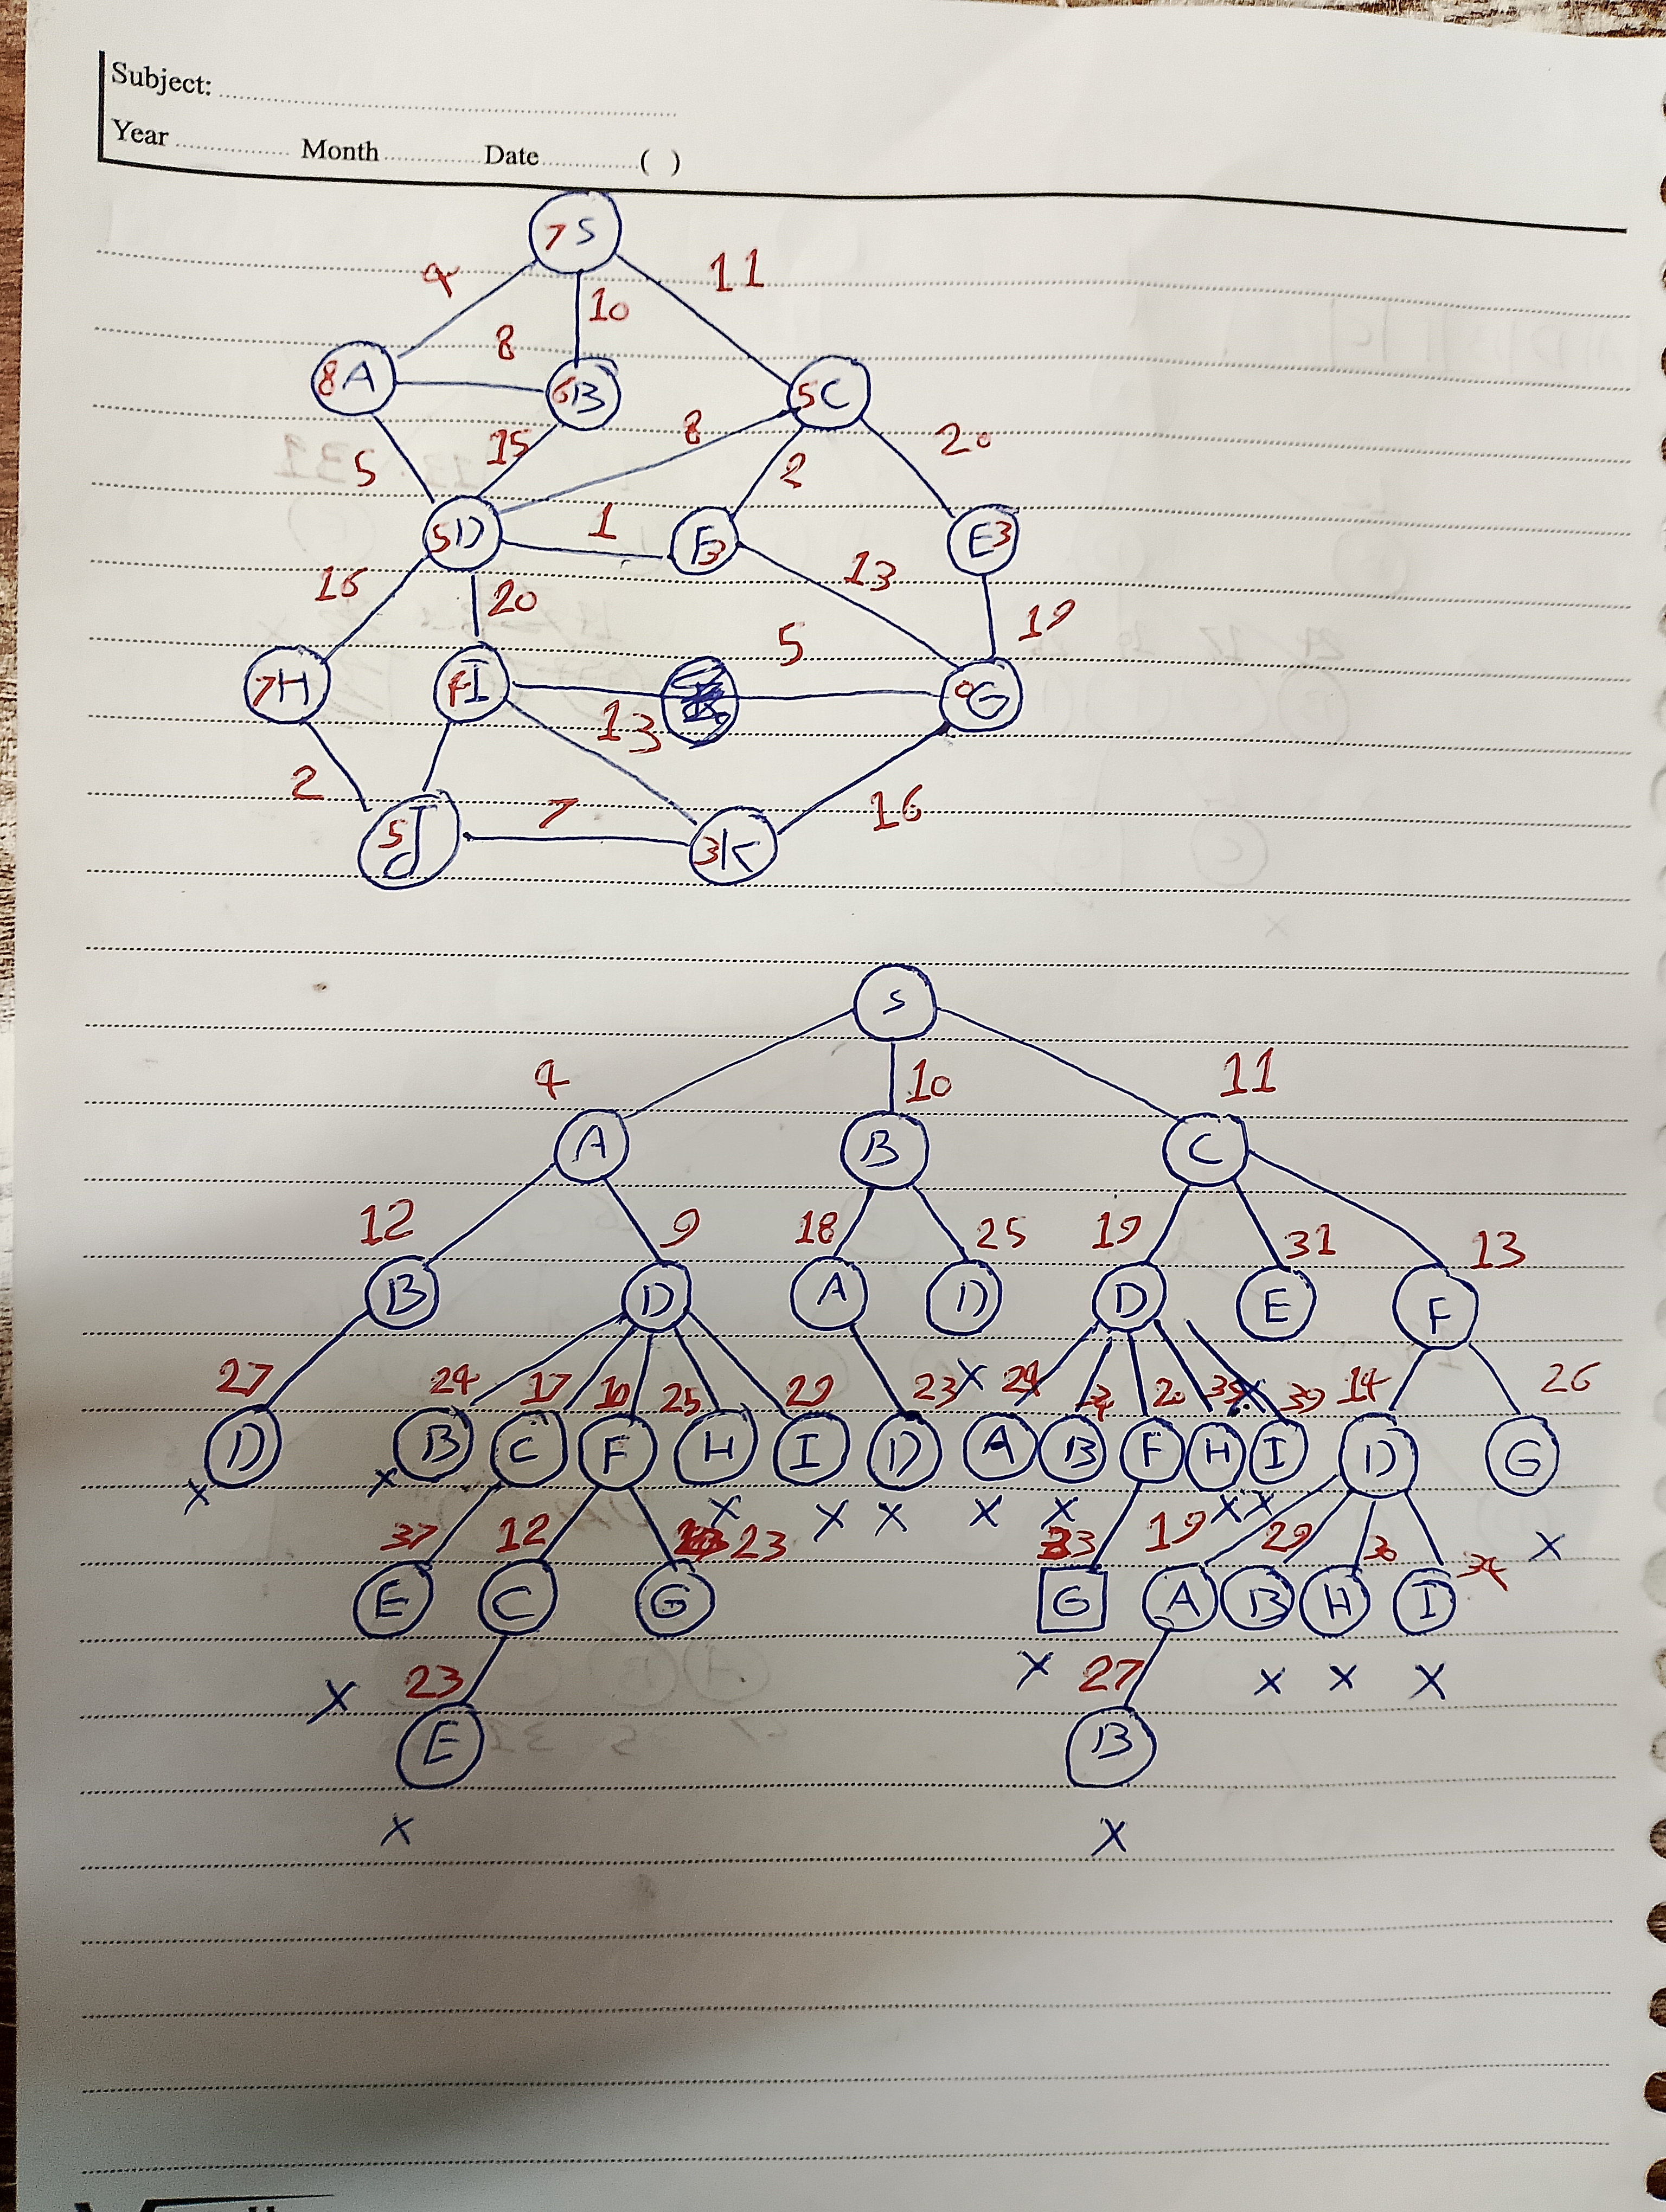 Subject:
Year Month Date ( )
7 S
4 10 11
8 A 8 6 B 5 C
5 15 8 2 20
5 D 1 F 3 E 3
16 20 13 19
7 H I 5 G
2 13
5 J 7 3 K 16
S
4 10 11
A B C
12 9 18 25 19 31 13
B D A D D E F
27 24 17 10 25 29 23 X 24 20 39 14 26
D B C F H I D A B F H I D G
X X X X X X X X X
37 12 23 33 19 29 30 34 X
E C G G A B H I
X 23 X 27 X X X
E B
X X